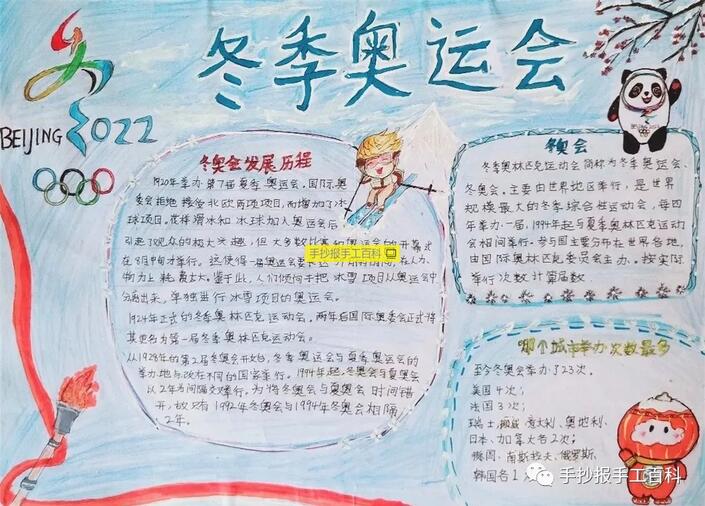 冬季奥运会
BEIJING 2022
冬奥会发展历程
1920年举办第7届夏季奥运会,国际奥
委会拒绝接受北欧两项项目,而增加了冰
球项目,花样滑冰和冰球加入奥运会后
引起了观众的极大兴趣,但大多数比赛
在8月
手抄报手工百科
物力上耗费太大。鉴于此,人们倾向于把冰雪项目从奥运会中
分离出来,单独进行冰雪项目的奥运会。
1924年正式的冬季奥林匹克运动会。两年后国际奥委会正式将
其更名为第一届冬季奥林匹克运动会。
从1928年的第2届冬奥会开始,冬季奥运会与夏季奥运会的
举办地与改在不同的国家举行。1994年起,冬奥会与夏奥会
以2年为间隔交叉举行。为将冬奥会与夏奥会时间错
开,故只有1992年冬奥会与1994年冬奥会相隔
2年。
冬奥会
冬季奥林匹克运动会简称为冬季奥运会、
冬奥会。主要由世界地区举行,是世界
规模最大的冬季综合性运动会,每四
年举办一届,1994年起与夏季奥林匹克运动
会相间举行。参与国主要分布在世界各地,
由国际奥林匹克委员会主办。按实际
举行次数计算届数
哪个城市举办次数最多
至今冬奥会举办了23次。
美国4次;
法国3次;
瑞士、挪威、意大利、奥地利、
日本、加拿大各2次;
德国、南斯拉夫、俄罗斯、
韩国各1次
手抄报手工百科